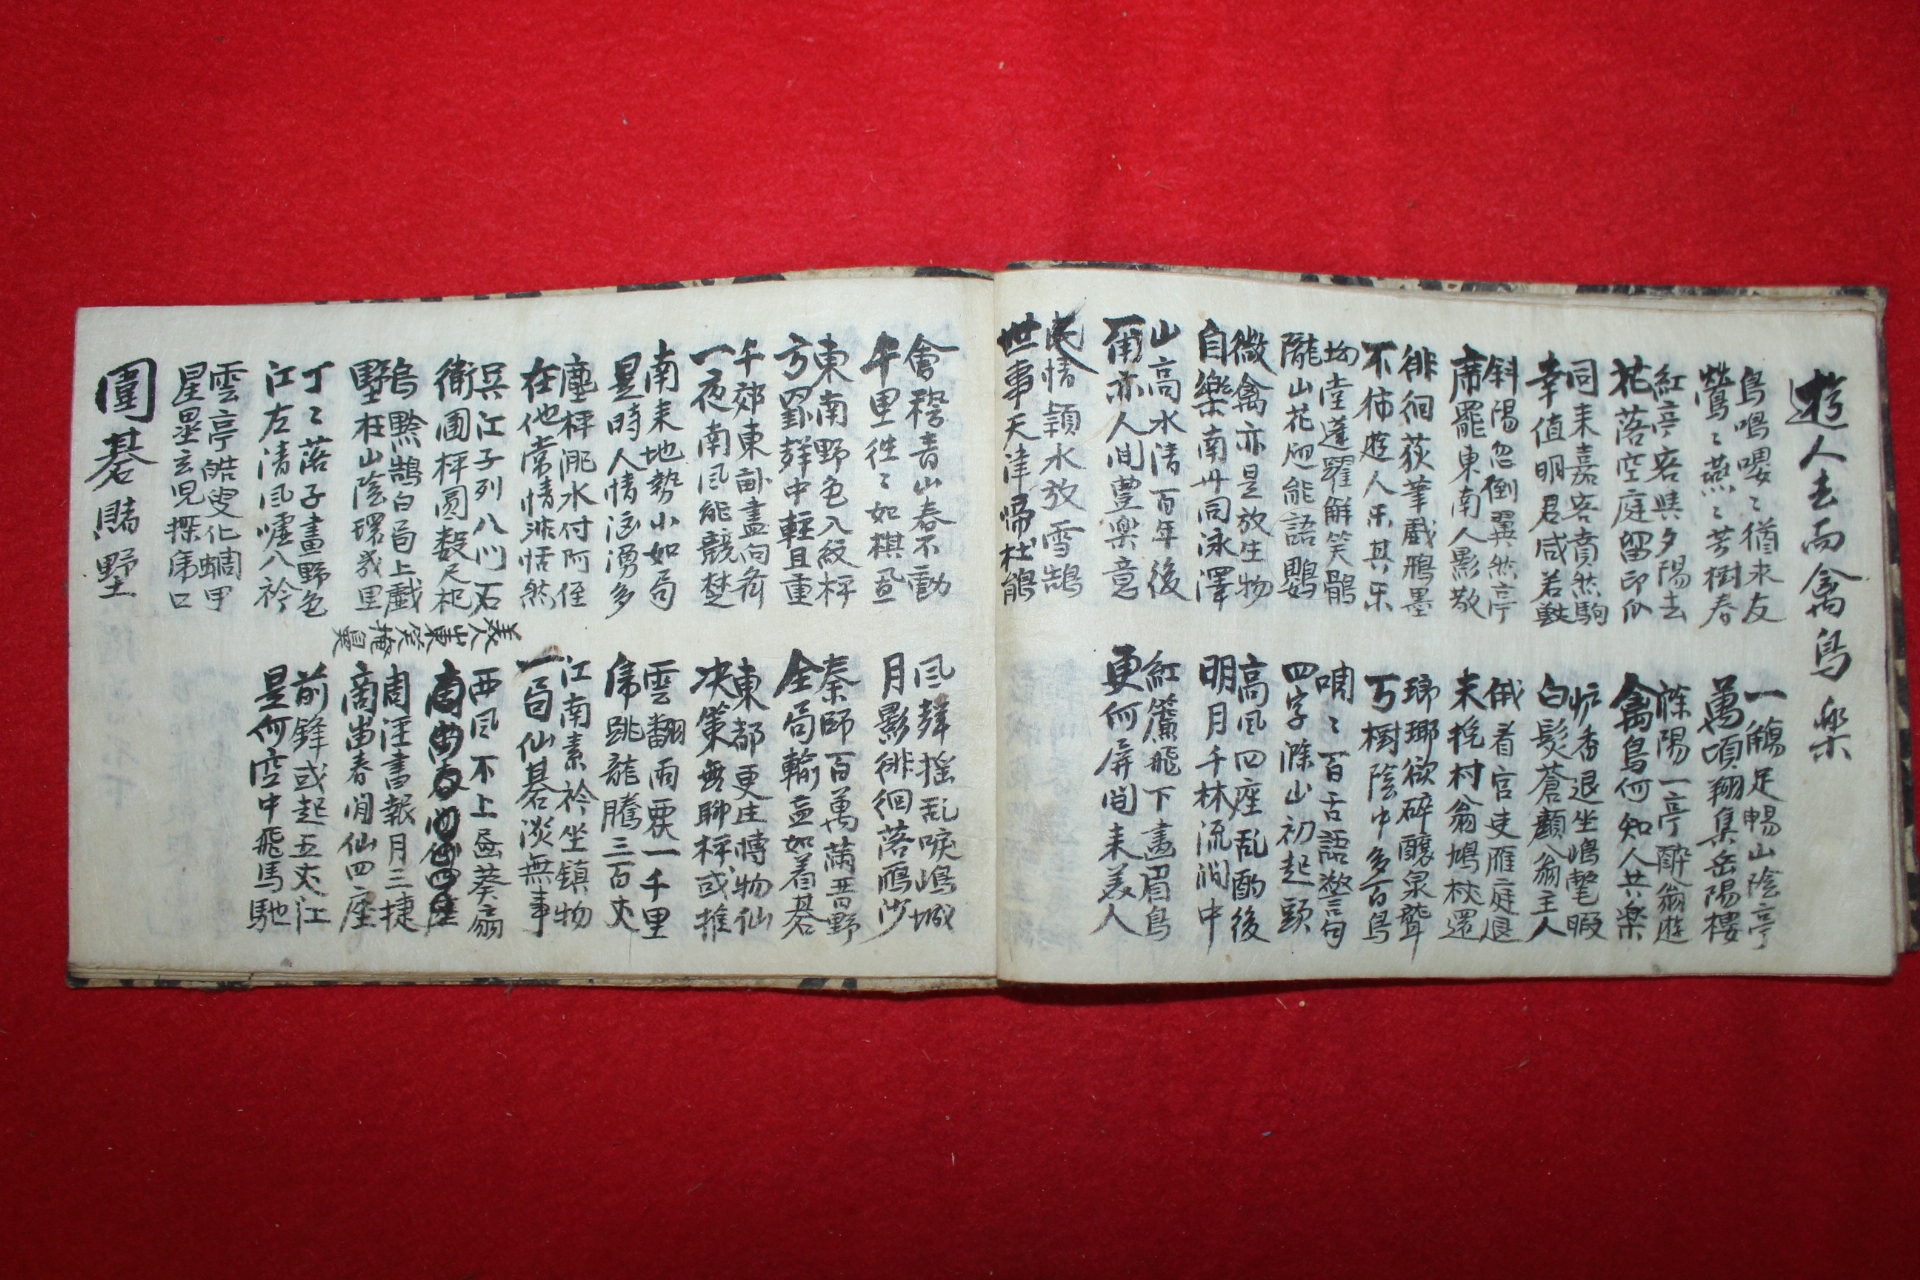 遊人去而禽鳥樂
鳥鳴嚶〻猶求友
鶯〻燕〻芳樹春
一觴足暢山陰亭
萬頃翔集岳陽樓
紅亭客與夕陽去
花落空庭留印爪
滁陽一亭醉翁遊
禽鳥何知人共樂
同来嘉客賁然駒
幸值明君咸若獸
炉香退坐 暇
白髮蒼顏翁主人
斜陽忽倒翼然亭
席罷東南人影散
俄看官吏雁庭退
末挽村翁鳩杖還
徘徊荻筆戱鴉墨
不待遊人乐其乐
瑯琊欲碎釀泉聲
樹陰中多百鳥
解笑鶻
隴山花 能語鸚
啁〻百舌語警句
四字滁山初起頭
微禽亦是放生物
自樂南 同泳澤
高風四座乱酌後
明月千林流澗中
山高水清百年後
爾亦人间豊樂意
紅簾飛下畫眉鳥
更何屏間来美人
民情頴水放雪鵠
世事天津啼杜鵑
會稽青山春不動
千里徃〻如棋
風聲搖乱唳 城
月影徘徊落鴈沙
東南野色入紋枰
方罫群中輕且重
秦師百萬滿晋野
全局輸贏如着碁
千郊東 盡向
一夜南風能競楚
東都更 博物仙
决策無聊枰或推
南来地勢小如局
是時人情洶湧多
雲翻雨覆一千里
席跳龍騰三百丈
塵枰淝水付阿侄
在他常情 恬然
江南素衿坐鎮物
一局仙碁淡無事
兵江子列八 石
衛圃枰圓数尺杞
西風不上 葵扇
烏黔鵠白局上戱
墅在山陰環幾里
書報月三捷
商嵓春間仙四座
丁〻落子畫野色
江左清風噓八衿
前鋒或起五丈江
是何空中飛馬馳
雲亭皓叟化蜩甲
星星玄児探席口
圍碁賭墅